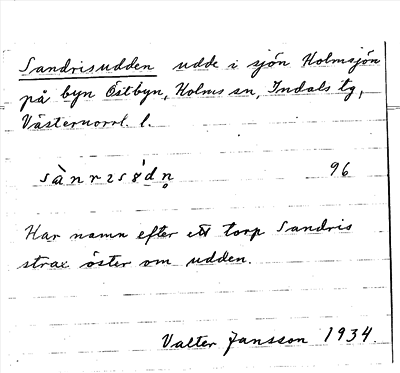 Sandrisudden udde i sjön Holmsjön
på byn Östbyn, Holms sn, Indals tg,
Västernorrl. l.
sànrɪsødn̥ 96
Har namn efter ett torp Sandris
strax öster om udden.
Valter Jansson 1934.